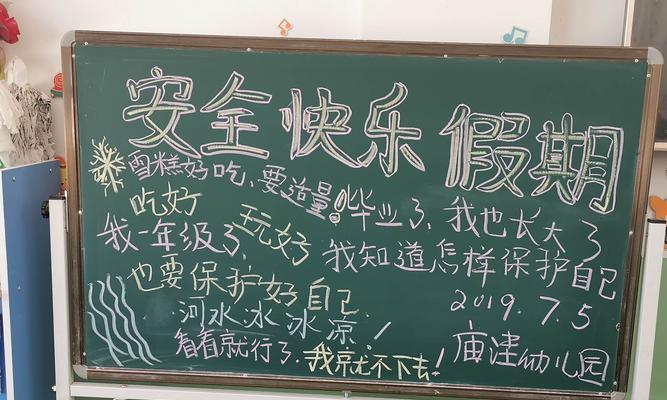 安全快乐假期
雪糕好吃、要适量!
毕业了,我也长大了
吃好
玩好
我一年级了
我知道怎样保护自己
也要保护好自己
2019.7.5
河水冰冰凉!
看看就行了,我就不下去!
庙洼幼儿园